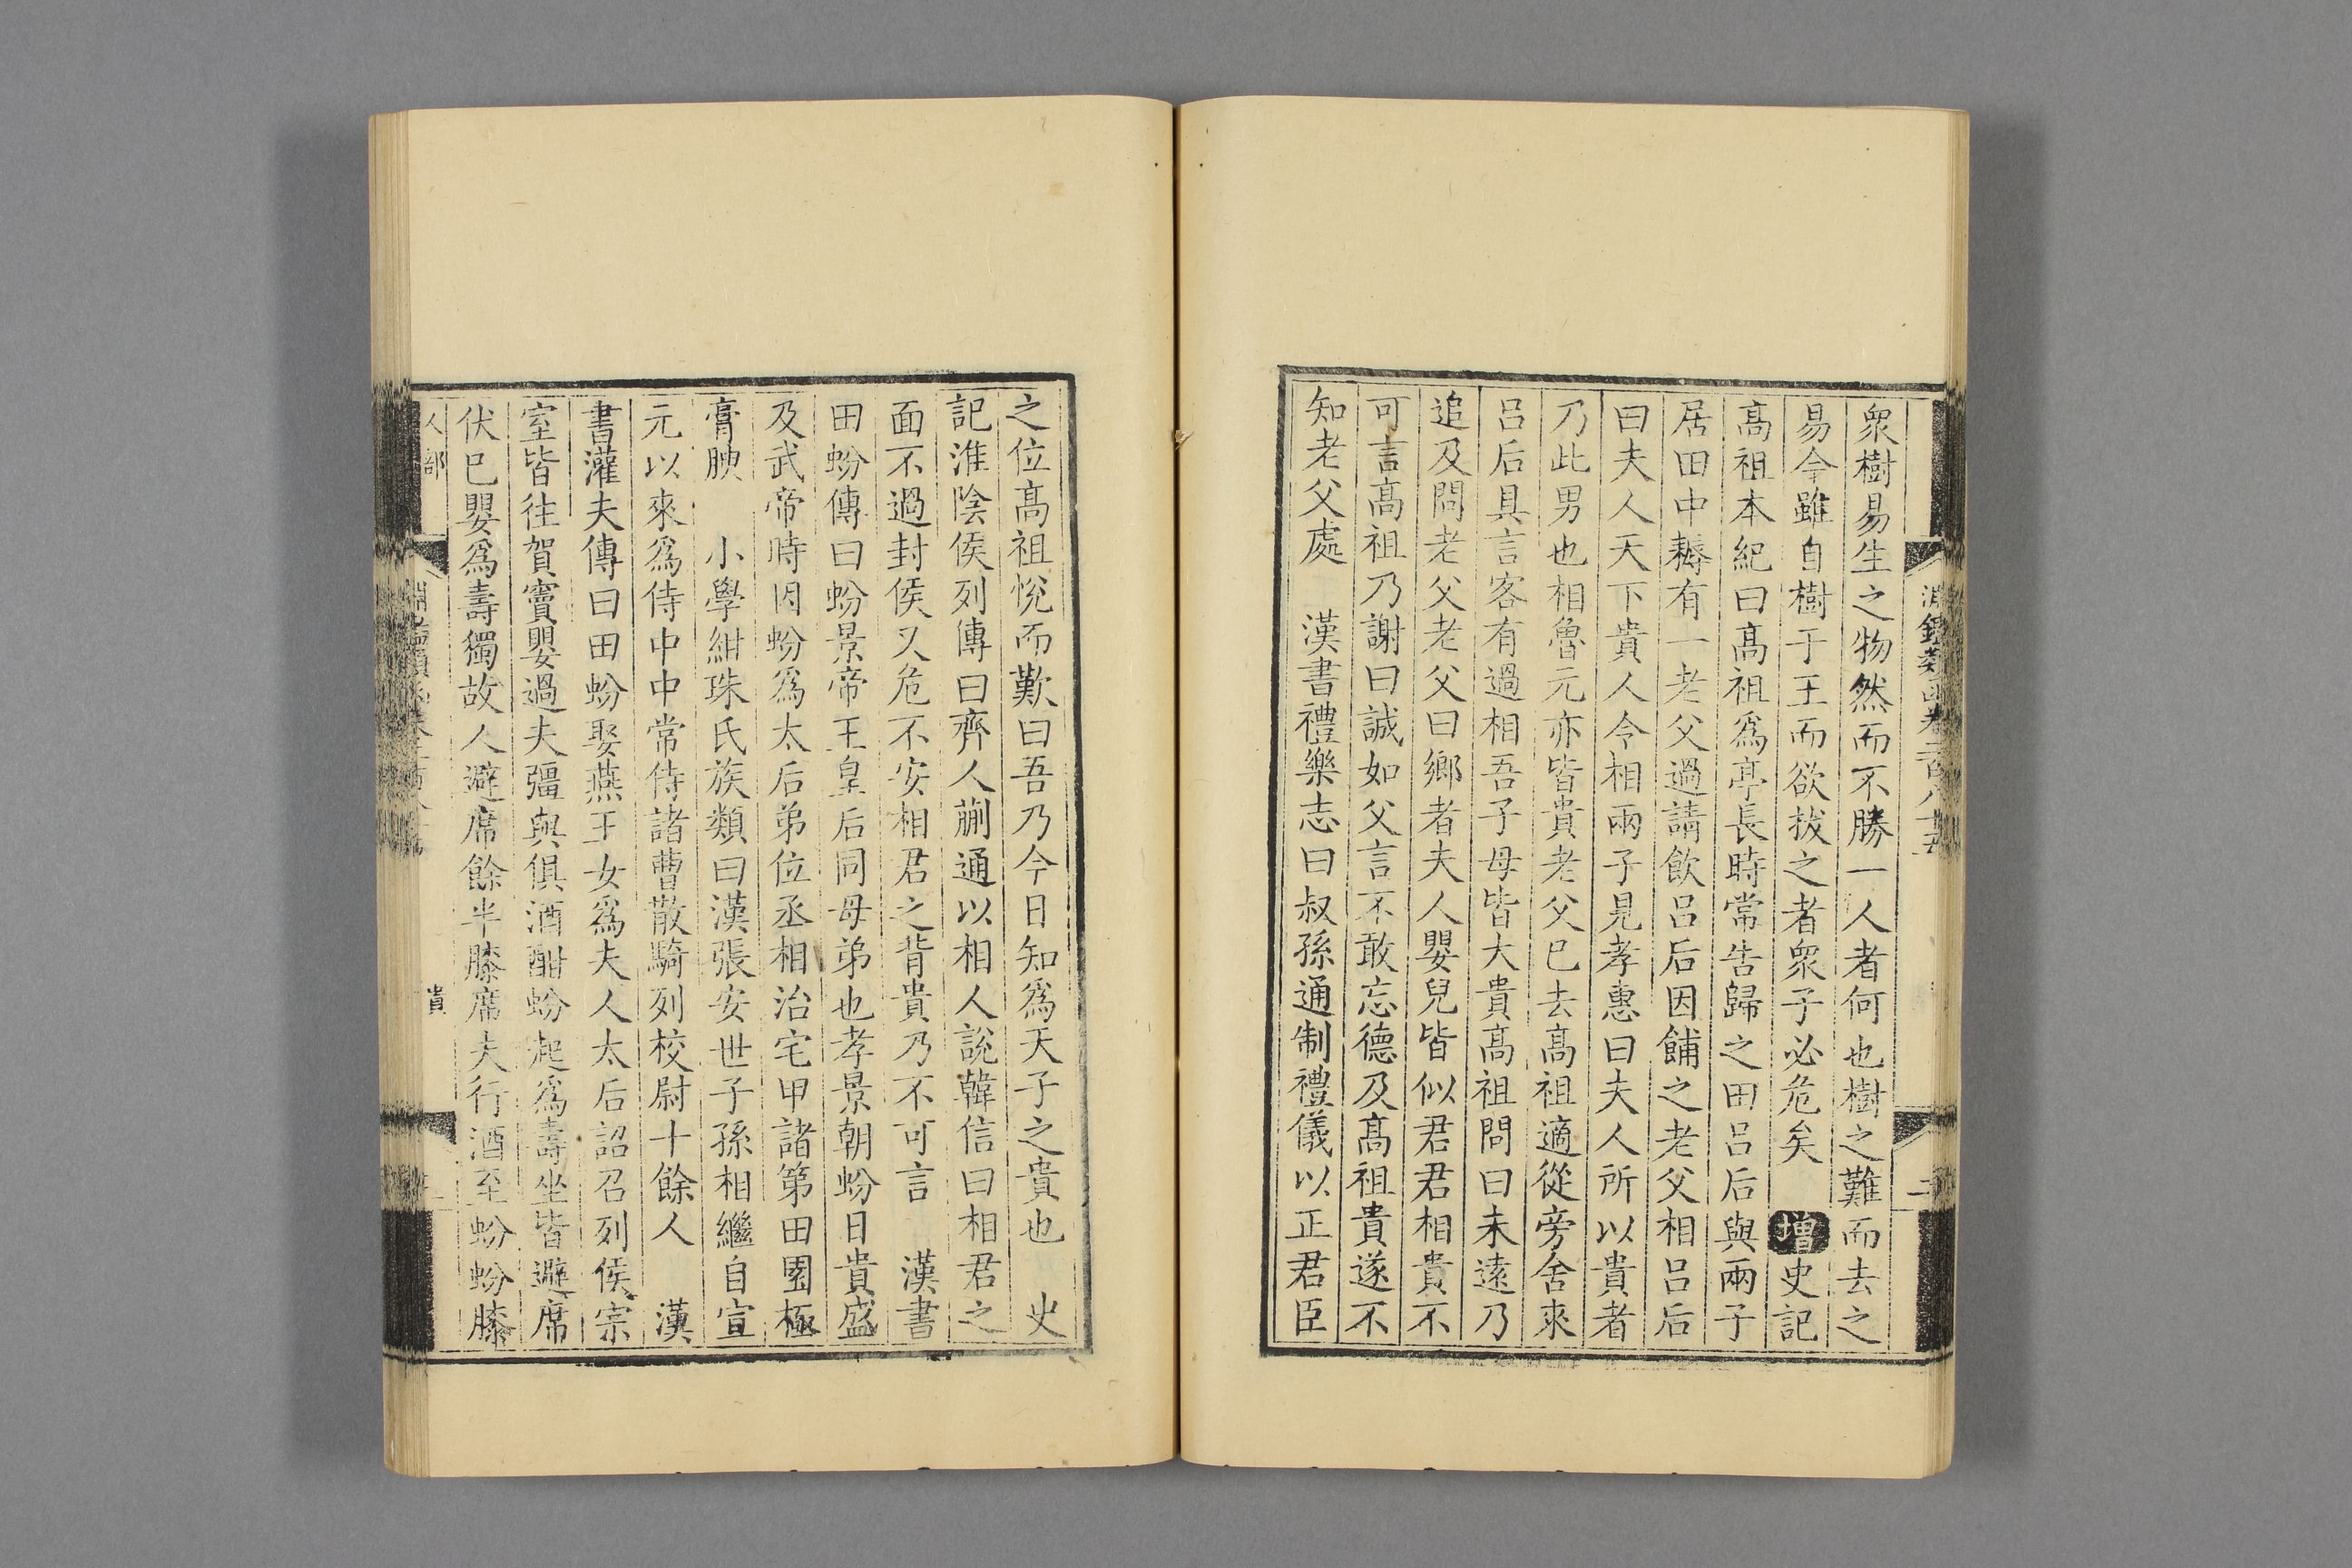 衆樹易生之物然而不勝一人者何也樹之難而去之
易今雖自樹于王而欲拔之者衆子必危矣 增史記
髙祖本紀曰髙祖爲亭長時常告歸之田吕后與兩子
居田中耨有一老父過請飲吕后因餔之老父相吕后
曰夫人天下貴人令相兩子見孝惠曰夫人所以貴者
乃此男也相魯元亦皆貴老父已去髙祖適從旁舍來
吕后具言客有過相吾子母皆大貴髙祖問曰未遠乃
追及問老父老父曰鄉者夫人嬰兒皆似君君相貴不
可言髙祖乃謝曰誠如父言不敢忘德及髙祖貴遂不
知老父處 漢書禮樂志曰叔孫通制禮儀以正君臣
之位髙祖悅而歎曰吾乃今日知爲天子之貴也 史
記淮陰侯列傳曰齊人蒯通以相人說韓信曰相君之
面不過封侯又危不安相君之背貴乃不可言 漢書
田蚡傳曰蚡景帝王皇后同母弟也孝景朝蚡日貴盛
及武帝時因蚡爲太后弟位丞相治宅甲諸第田園極
膏腴 小學紺珠氏族類曰漢張安世子孫相繼自宣
元以來爲侍中中常侍諸曹散騎列校尉十餘人 漢
書灌夫傳曰田蚡娶燕王女爲夫人太后詔召列侯宗
室皆往賀竇嬰過夫彊與俱酒酣蚡起爲壽坐皆避席
伏已嬰爲壽獨故人避席餘半膝席夫行酒至蚡蚡膝
人部
貴